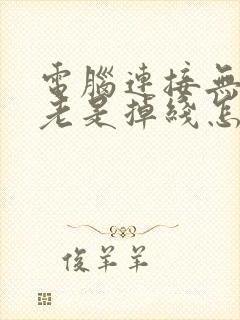 電腦連接無
老是掉綫怎
俊羊羊